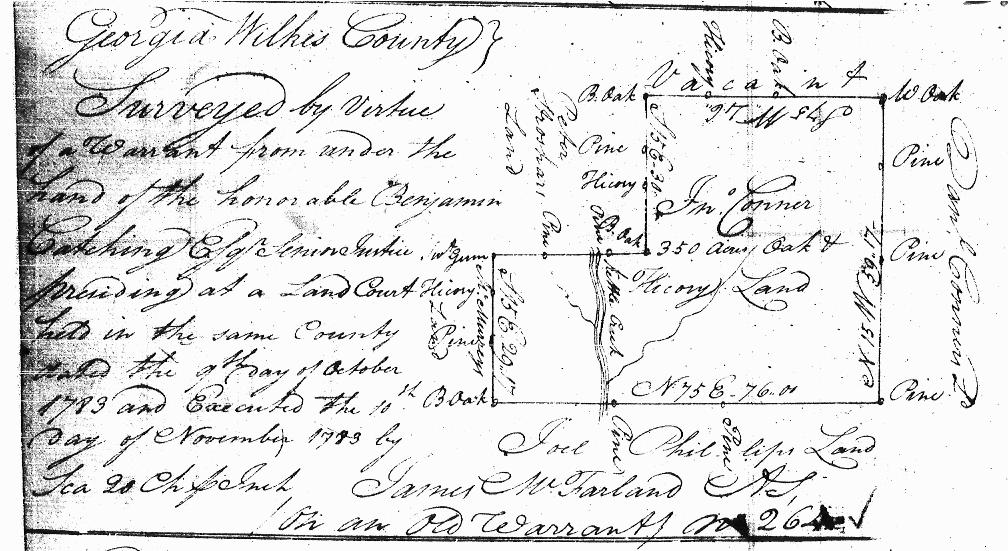 Georgia Wilkes County}
Surveyed by Virtue
of a Warrant from under the
hand of the honorable Benjamin
Catching Esqr Senior Justice,
presiding at a Land Court
held in the same County
dated the 9th day of October
1783 and Executed the 10th
day of November, 1783 by
Sca 20 Ch pr Inch
James McFarland DS,
On an Old Warrant
264
Vacant
Hicory
B. Oak
B. Oak
W Oak
Pine
Pine
Pine
Danl Conners Ld
S 75 W
S 15 E 30
Jno Conner
350 Acres Oak &
Hicory Land
N 15 W
Peter
Land
Pine
Hicory
B. Oak
Pine
W Gum
Hicory
Pine
Land
B. Oak
S 15 E 29.17
Creek
N 75 E - 76.01
Pine
Pine
Joel Phillips Land